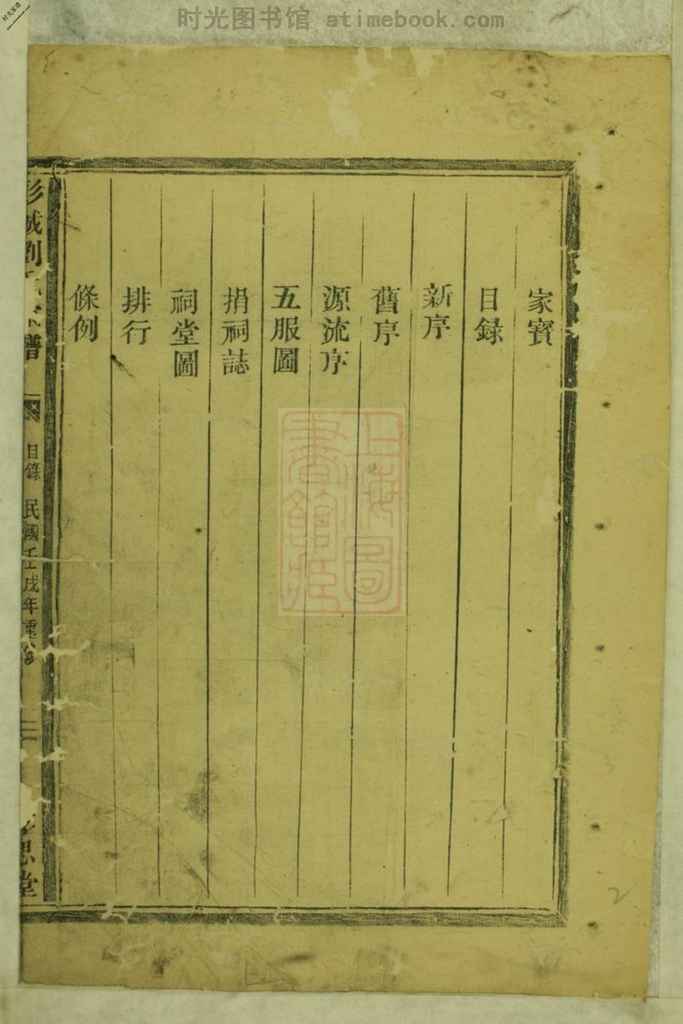 时光图书馆 atimebook.com
家寳
目録
新序
舊序
源流序
五服圖
捐祠誌
祠堂圖
排行
條例
彭城劉氏宗譜
目録
民國壬戌年重修
二
思堂
上海图書館藏
2